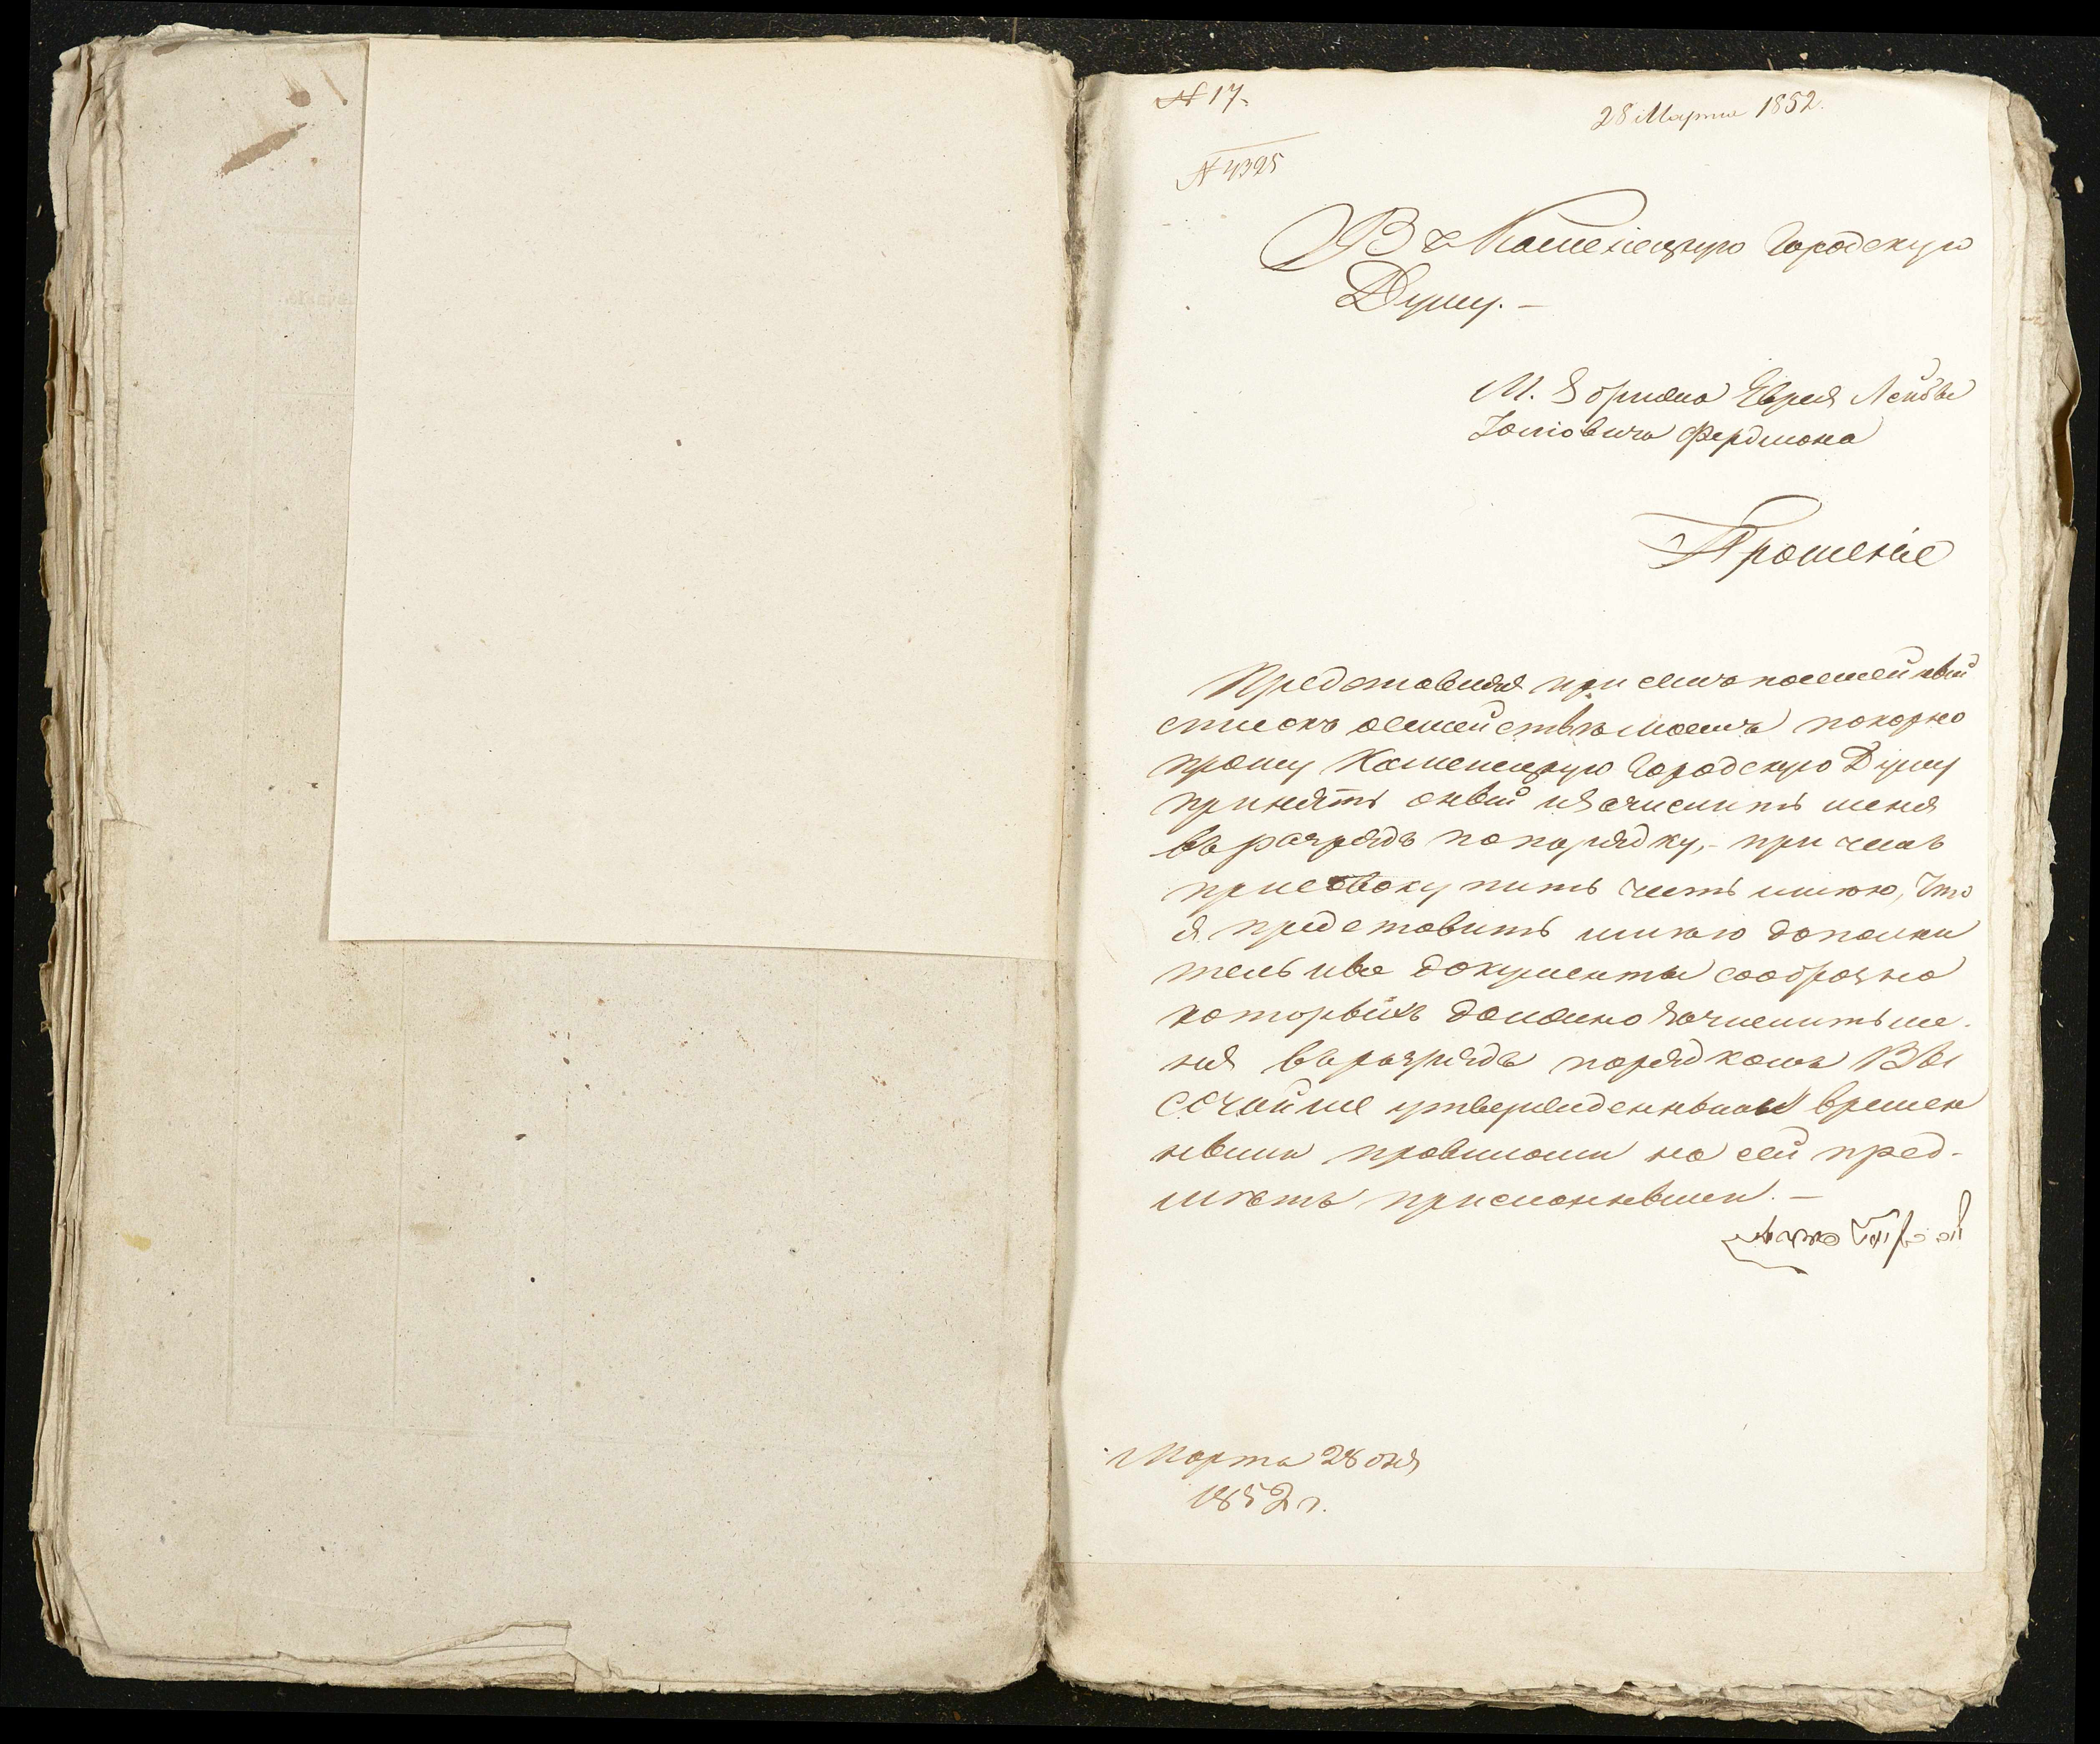 № 17.
28 Марта 1852.
№ 4325
Въ Каменецкую Городскую
Думу. —
М. Збрижа Еврея Лейбы
Іосіовича Фердмана
Прошеніе
Представляя при семъ посемейный
списокъ о семействѣ моемъ покорно
прошу Каменецкую Городскую Думу
принять оный и зачислить меня
въ разрядъ по порядку, – при чемъ
присовокупить честь имѣю, что
я представить имѣю дополни
тельные документы сообразно
которыхъ должно зачислить ме-
ня въ разрядъ порядкомъ Вы
сочайше утвержденными времен
ными правилами на сей пред-
мѣтъ присланными. —
Марта 28 дня
1852 г.